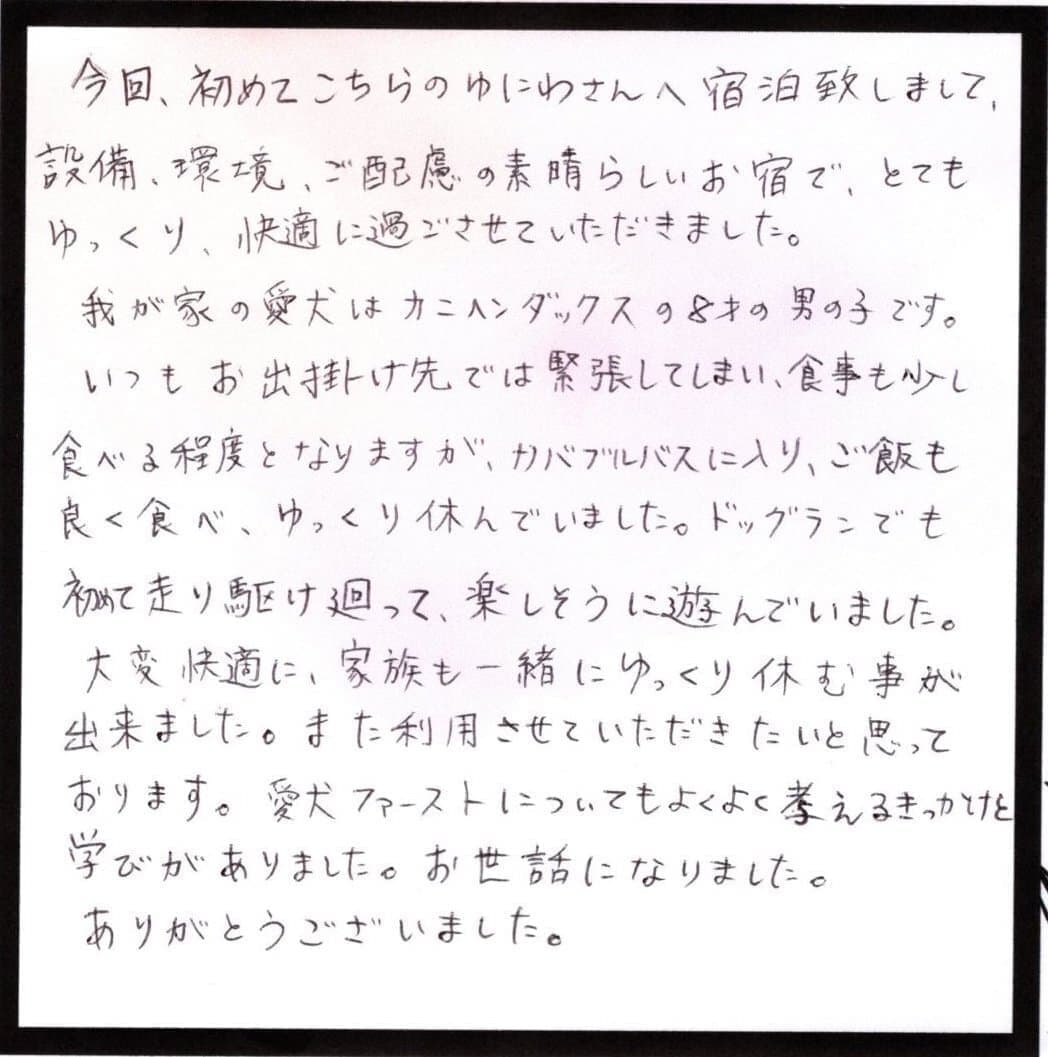 今回、初めてこちらのゆにわさんへ宿泊致しまして、
設備、環境、ご配慮の素晴らしいお宿で、とても
ゆっくり、快適に過ごさせていただきました。
我が家の愛犬はカニヘンダックスの8才の男の子です。
いつもお出掛け先では緊張してしまい、食事も少し
食べる程度となりますが、カバブルバスに入り、ご飯も
良く食べ、ゆっくり休んでいました。ドッグランでも
初めて走り駆け廻って、楽しそうに遊んでいました。
大変快適に、家族も一緒にゆっくり休む事が
出来ました。また利用させていただきたいと思って
おります。愛犬ファーストについてもよくよく考えるきっかけと
学びがありました。お世話になりました。
ありがとうございました。